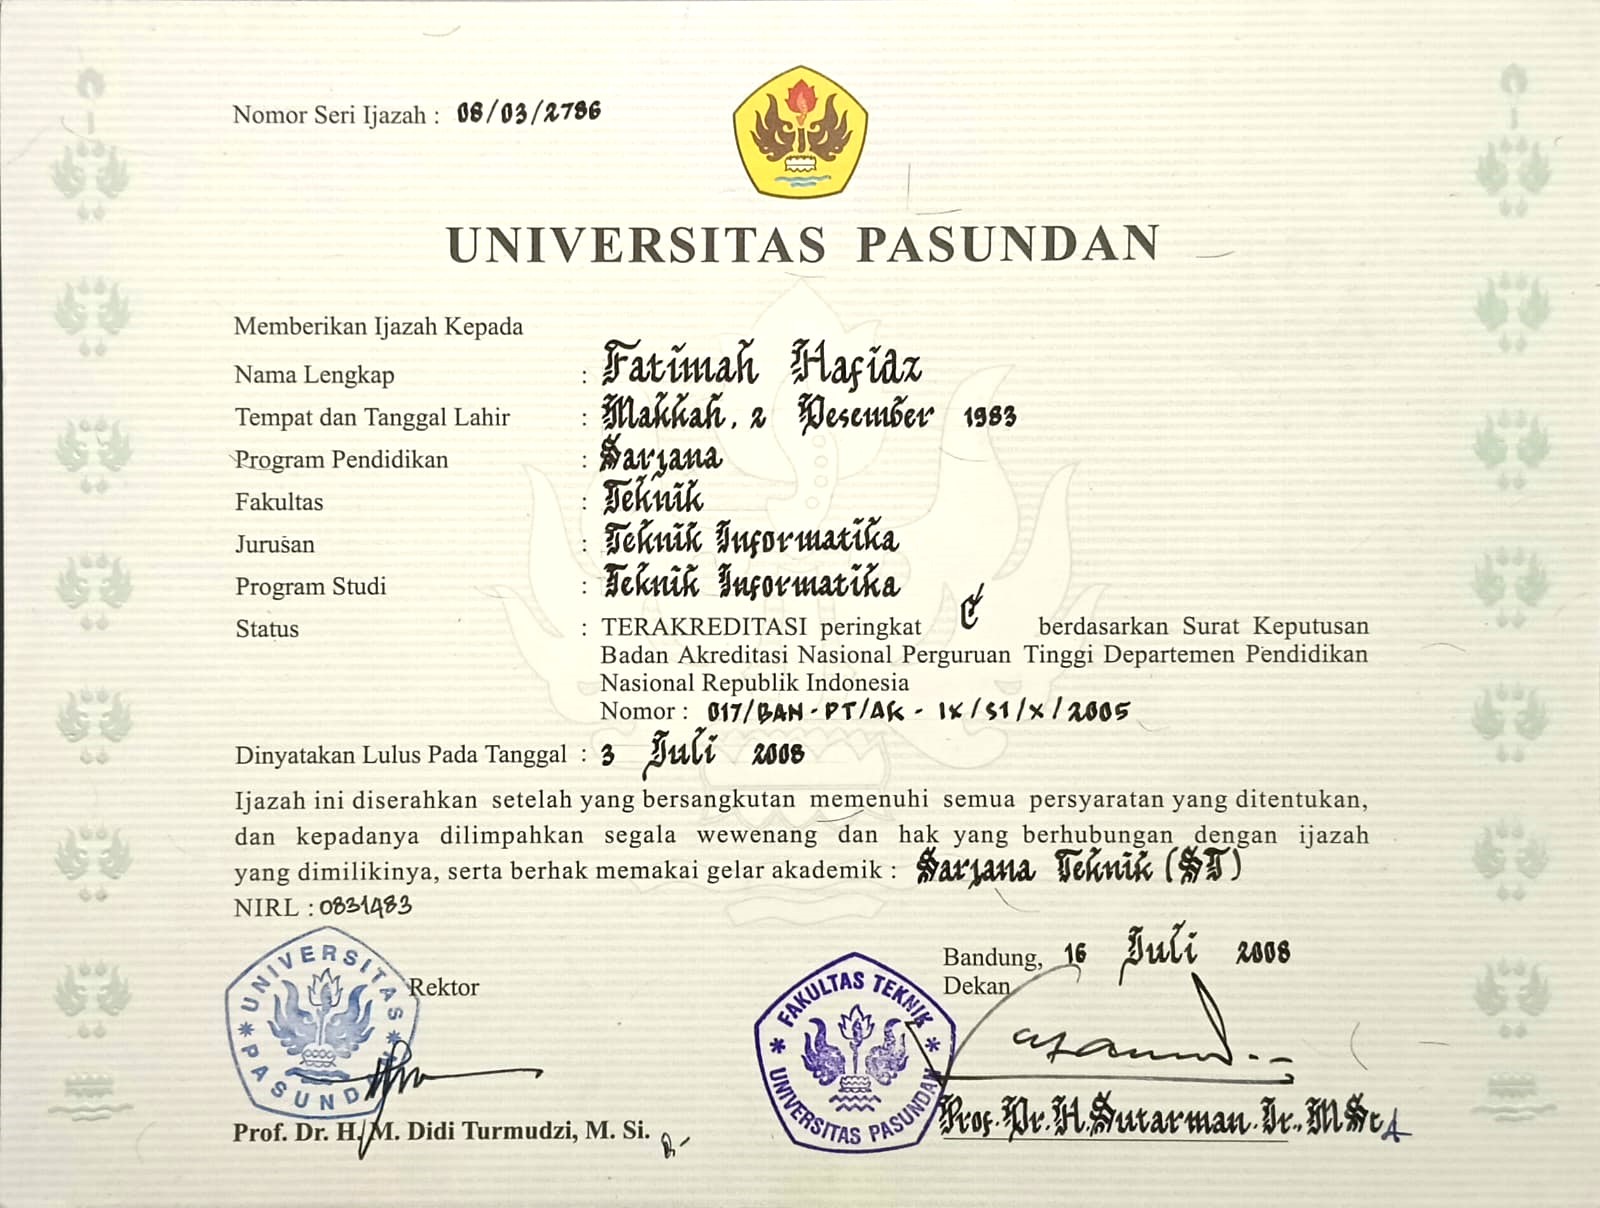 Nomor Seri Ijazah : 08/03/2786
UNIVERSITAS PASUNDAN
Memberikan Ijazah Kepada
Nama Lengkap : Fatimah Hafidz
Tempat dan Tanggal Lahir : Makkah, 2 Desember 1983
Program Pendidikan : Sarjana
Fakultas : Teknik
Jurusan : Teknik Informatika
Program Studi : Teknik Informatika
Status : TERAKREDITASI peringkat C berdasarkan Surat Keputusan
Badan Akreditasi Nasional Perguruan Tinggi Departemen Pendidikan
Nasional Republik Indonesia
Nomor : 017/BAN-PT/AK-IX/S1/X/2005
Dinyatakan Lulus Pada Tanggal : 3 Juli 2008
Ijazah ini diserahkan setelah yang bersangkutan memenuhi semua persyaratan yang ditentukan,
dan kepadanya dilimpahkan segala wewenang dan hak yang berhubungan dengan ijazah
yang dimilikinya, serta berhak memakai gelar akademik : Sarjana Teknik (ST)
NIRL : 0831483
Bandung, 16 Juli 2008
Rektor
Dekan
UNIVERSITAS PASUNDAN
FAKULTAS TEKNIK
UNIVERSITAS PASUNDAN
Prof. Dr. H. M. Didi Turmudzi, M. Si.
Prof. Dr. H. Sutarman. Ir., MSc